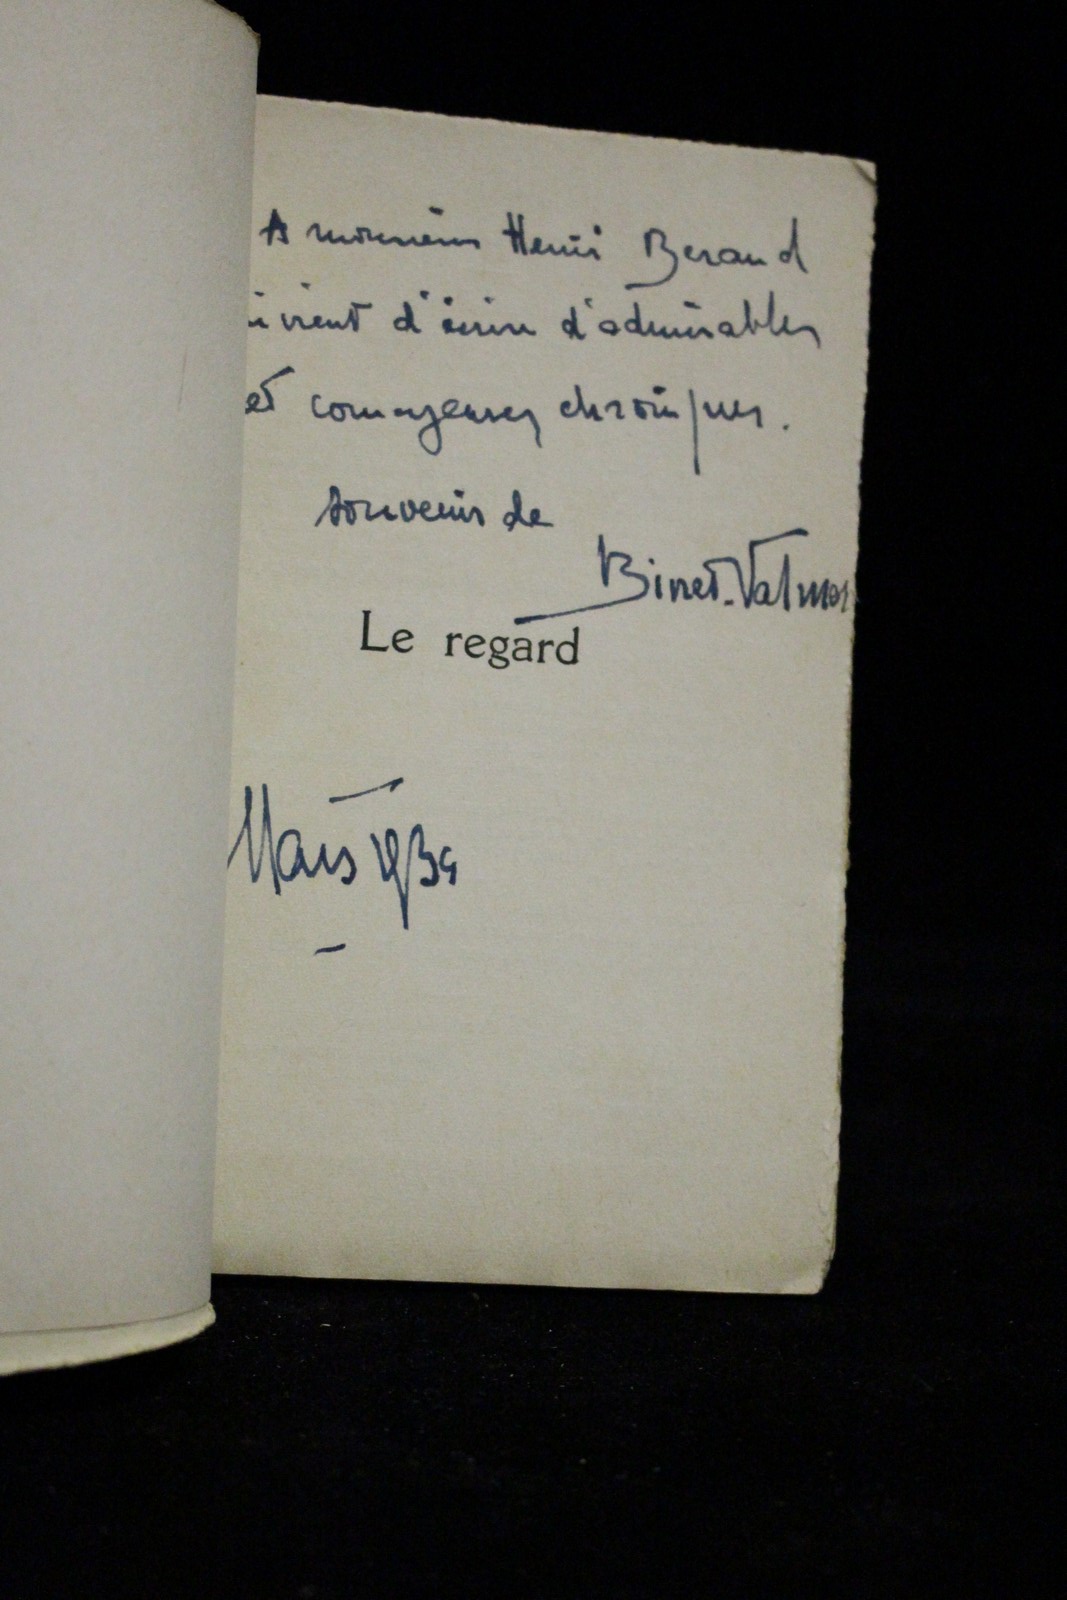 A monsieur Henri Beraud
vient d'écrire d'admirables
et courageuses chroniques.
souvenir de
Binet-Valmer
Le regard
Mars 1934